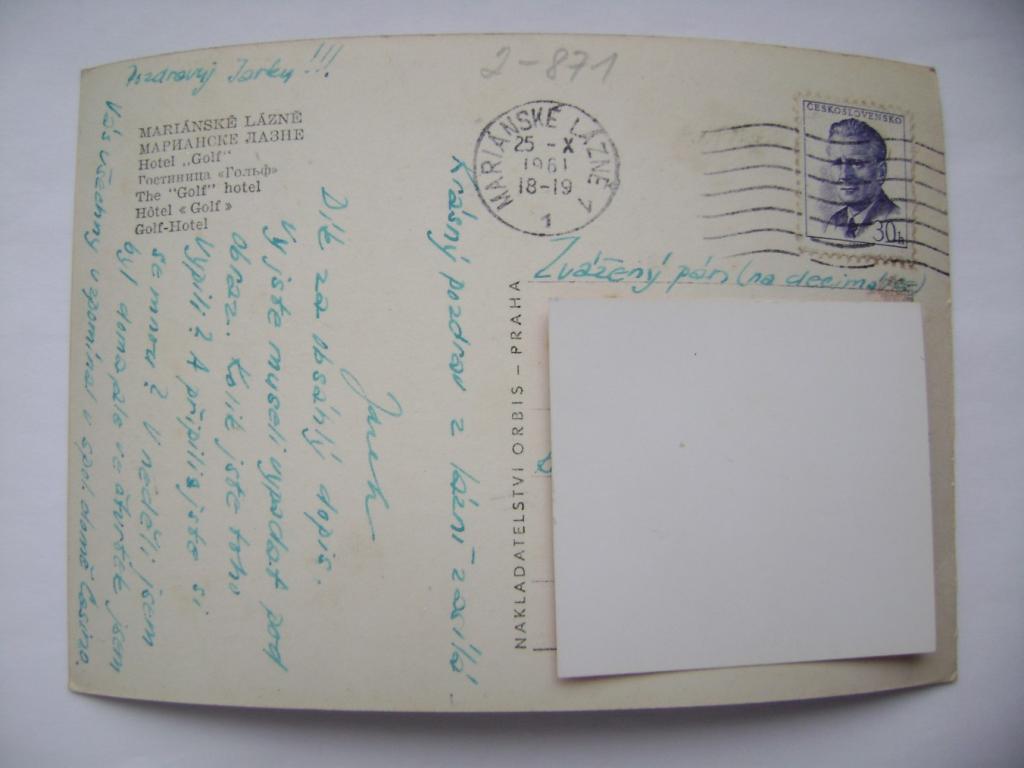 Pozdravuj Jarku!!!
MARIÁNSKÉ LÁZNĚ
МАРИАНСКЕ ЛАЗНЕ
Hotel „Golf"
Гостиница «Гольф»
The "Golf" hotel
Hôtel « Golf »
Golf-Hotel
2-871
MARIÁNSKÉ LÁZNĚ 1
25 -X
1961
18-19
1
ČESKOSLOVENSKO
30h
Zvážený pán (na decimálce)
NAKLADATELSTVÍ ORBIS – PRAHA
Krásný pozdrav z lázní zasílá
Jarek
Dík za obsáhlý dopis.
Vy jste museli vypadat pod
obraz. Kolik jste toho
vypili? A připili jste si
se mnou? V neděli jsem
byl doma ale ve čtvrtek jsem
Vás všechny vzpomínal v spol. domě Casino.